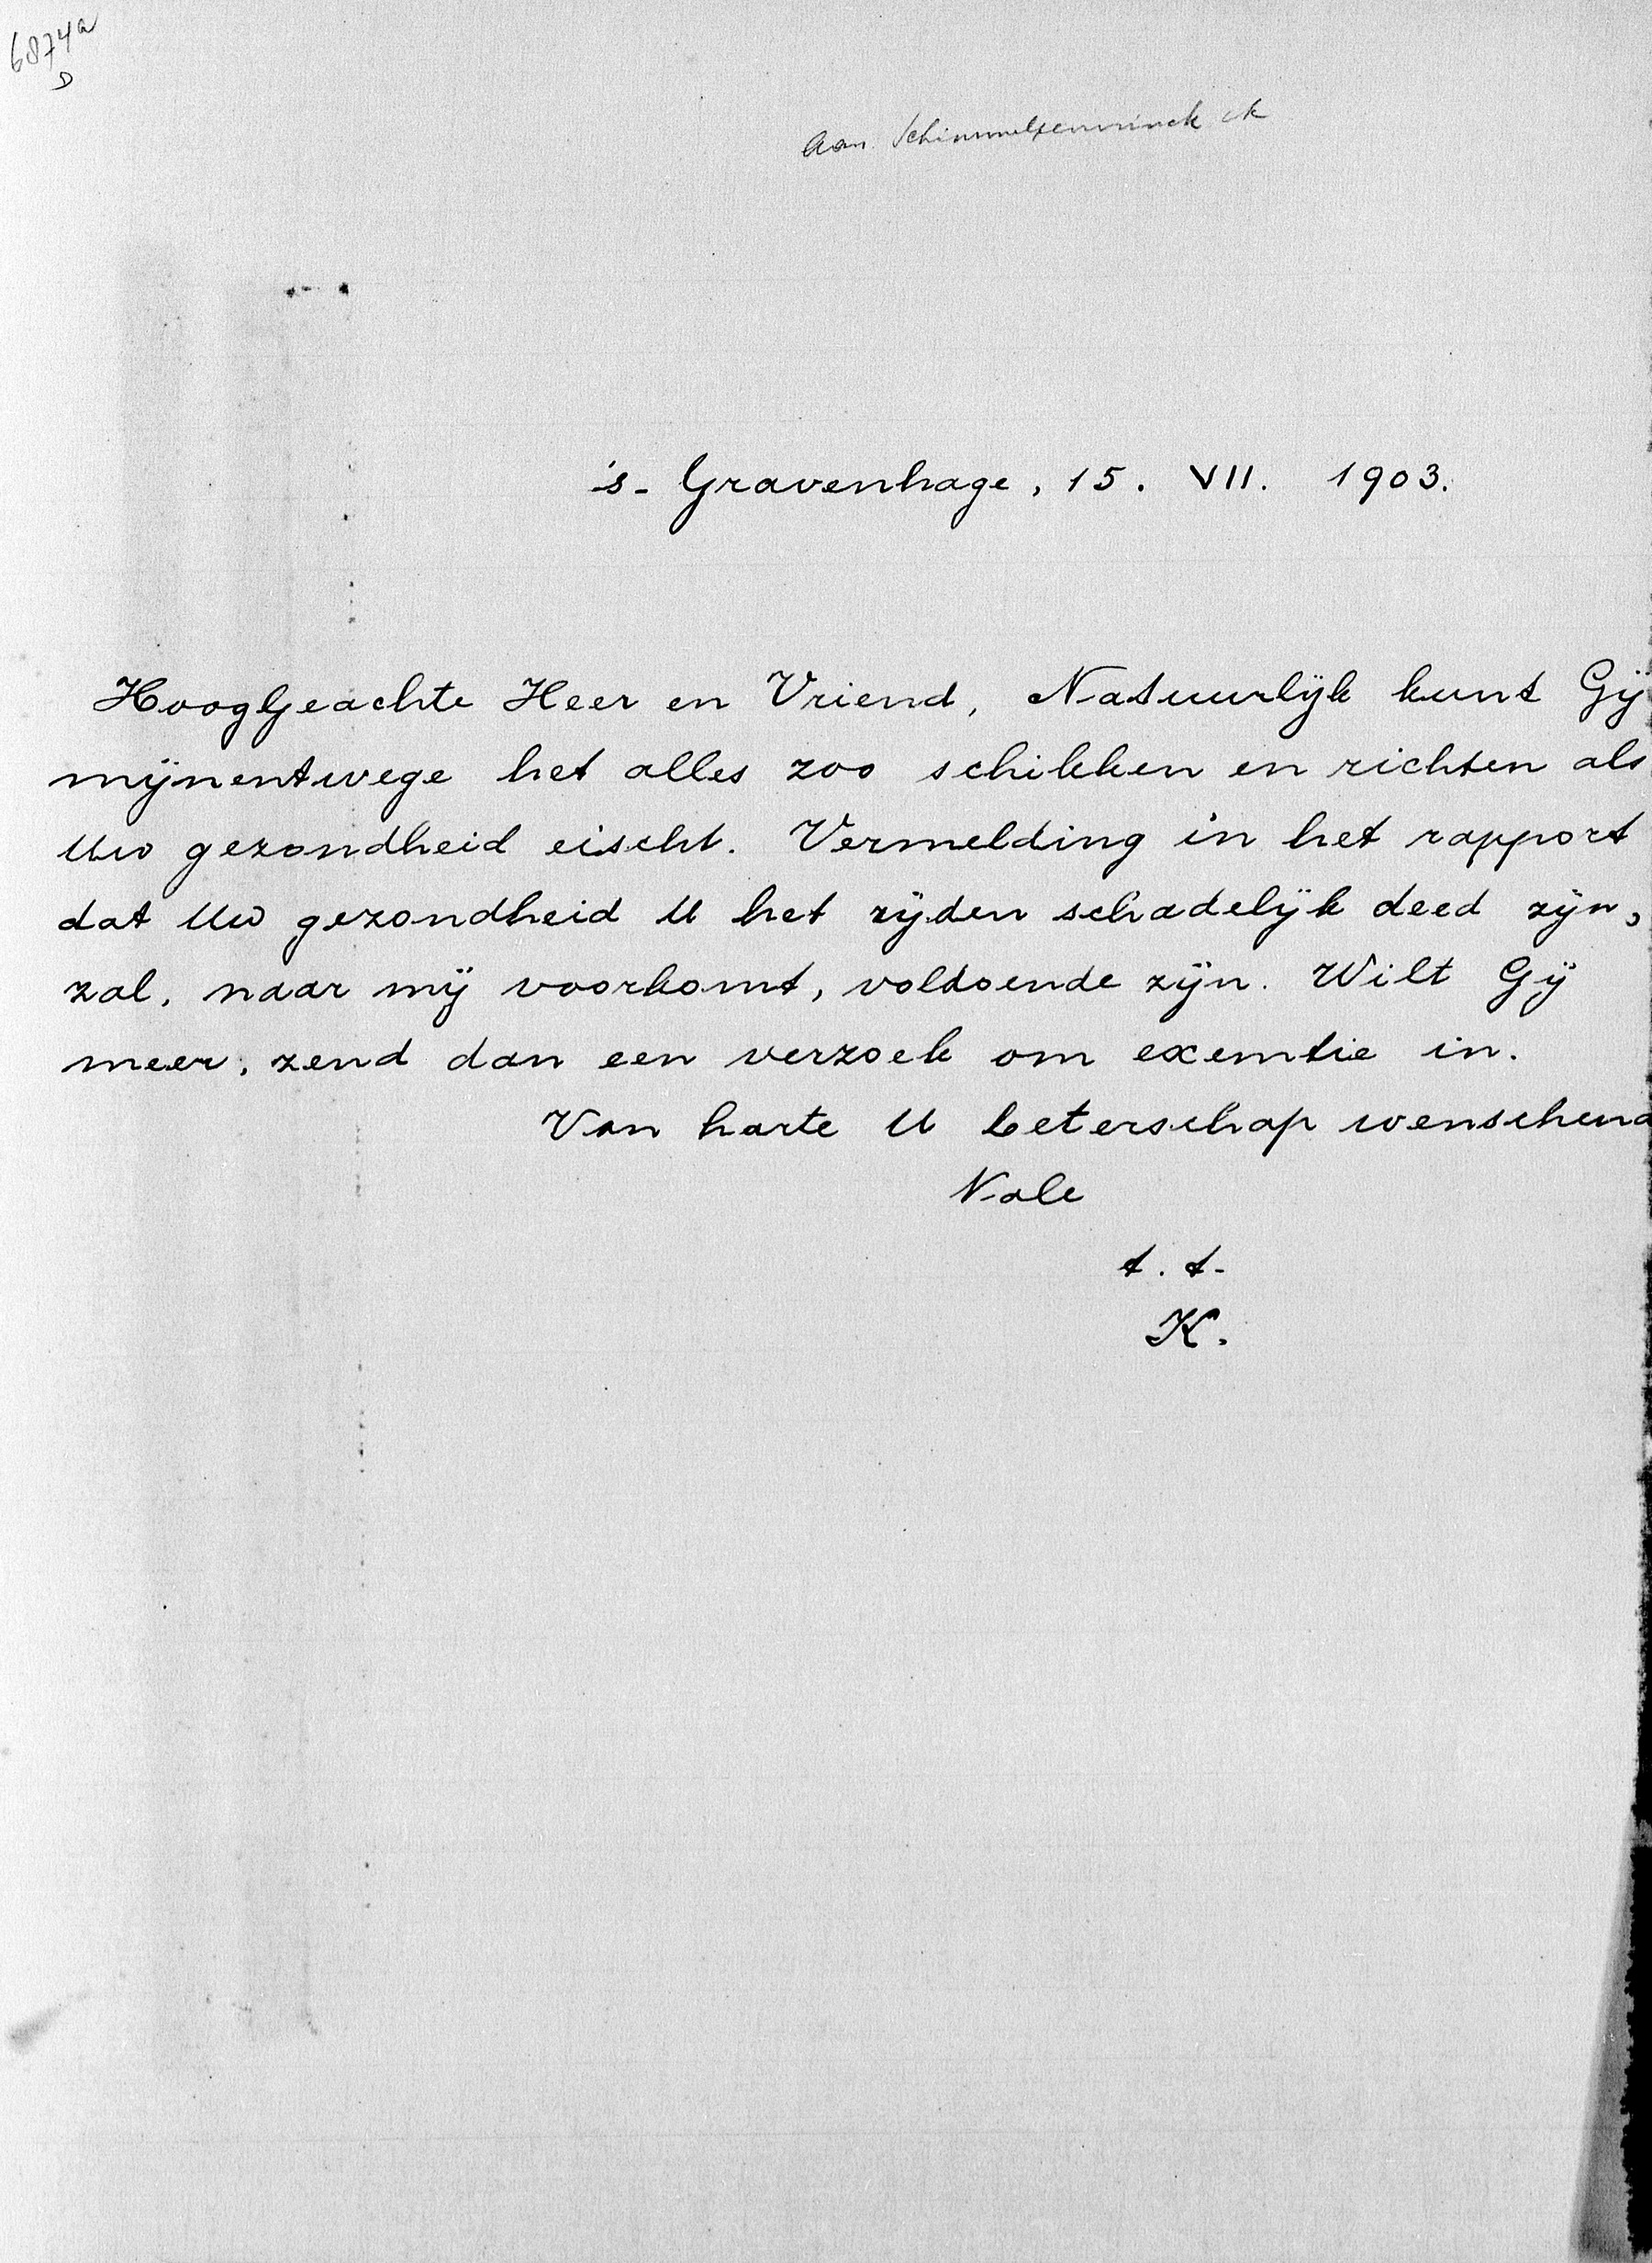 6874a
D
Aan Schimmelpenninck ck
's-Gravenhage, 15. VII. 1903.
HoogGeachte Heer en Vriend, Natuurlijk kunt Gij
mijnentwege het alles zoo schikken en richten als
Uw gezondheid eischt. Vermelding in het rapport
dat Uw gezondheid U het rijden schadelijk deed zijn,
zal, naar mij voorkomt, voldoende zijn. Wilt Gij
meer, zend dan een verzoek om exemtie in.
Van harte U beterschap wenschend
Vale
t. t.
K.